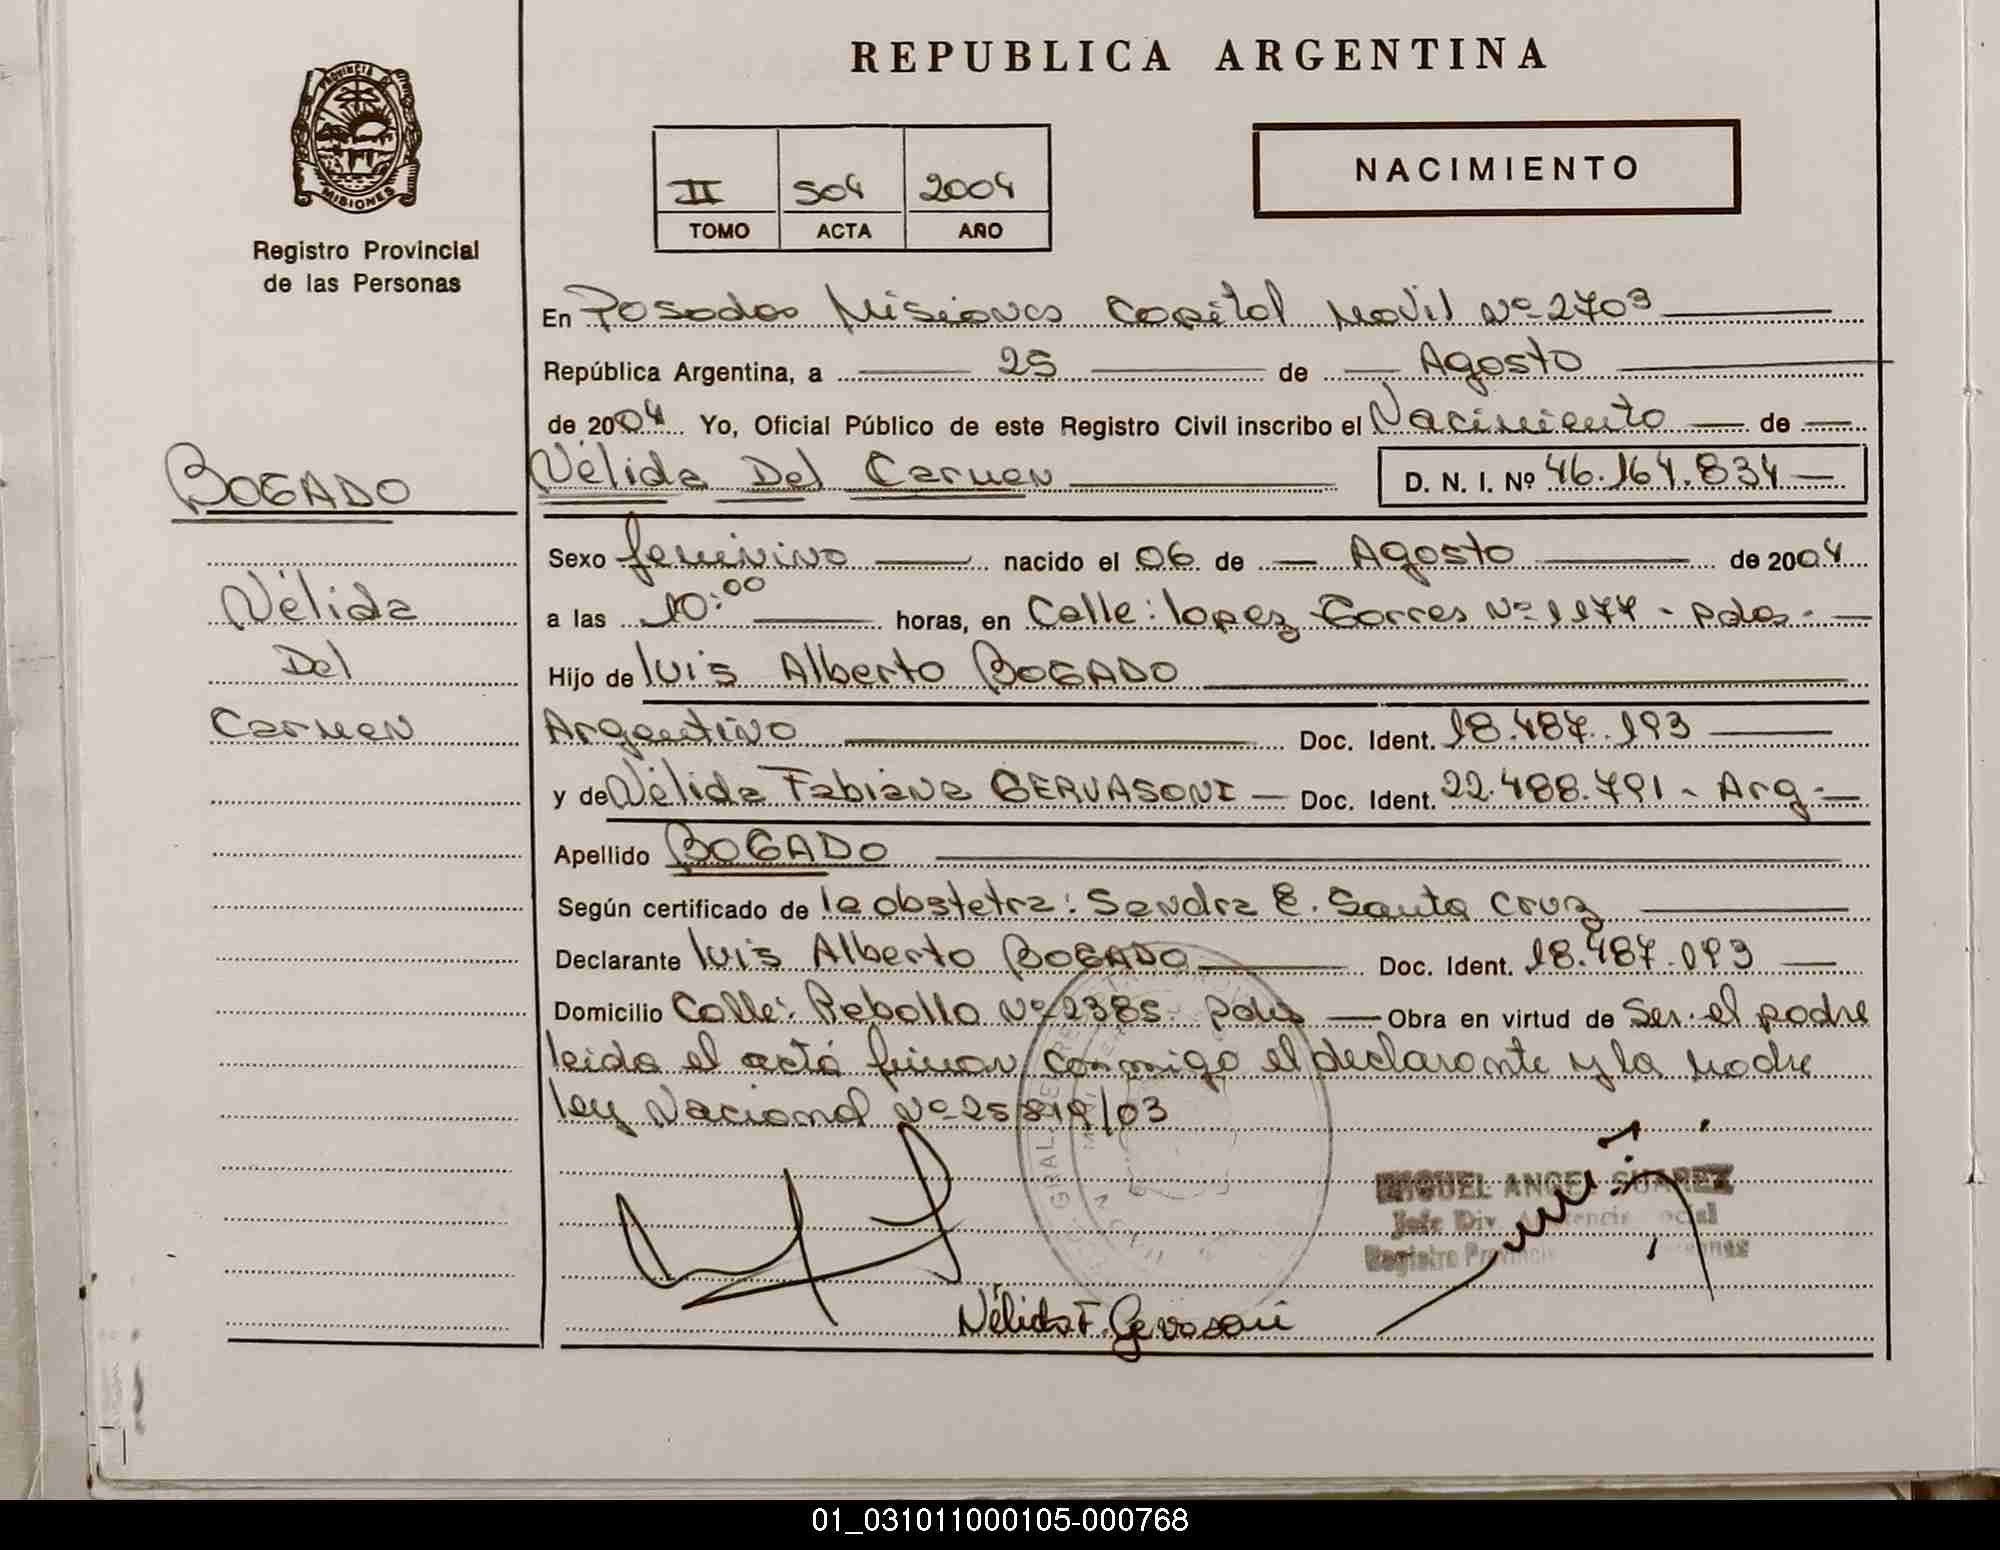 REPUBLICA ARGENTINA
PROVINCIA DE MISIONES
Registro Provincial
de las Personas
II 504 2004
TOMO ACTA AÑO
NACIMIENTO
En Posadas Misiones Capital Movil Nº 2703
República Argentina, a 25 de Agosto
de 2004 Yo, Oficial Público de este Registro Civil inscribo el Nacimiento de
BOGADO
Nélida Del Carmen D. N. I. Nº 46.164.834
Sexo femenino nacido el 06 de Agosto de 2004
Nélida
a las 10:00 horas, en Calle: Lopez Torres Nº 1177 - Pdas.
Del
Hijo de Luis Alberto BOGADO
Carmen
Argentino Doc. Ident. 18.487.193
y de Nélida Fabiana GERVASONI Doc. Ident. 22.488.791 - Arg.
Apellido BOGADO
Según certificado de la obstetra: Sandra E. Santa Cruz
Declarante Luis Alberto BOGADO Doc. Ident. 18.487.093
Domicilio Calle: Rebollo Nº 2385 Pdas Obra en virtud de Ser el padre
leida el acta firman conmigo el declarante y la madre
ley Nacional Nº 25819/03
MIGUEL ANGEL SUAREZ
Jefe Div.
Registro
Nélida F. Gervasoni
01_031011000105-000768